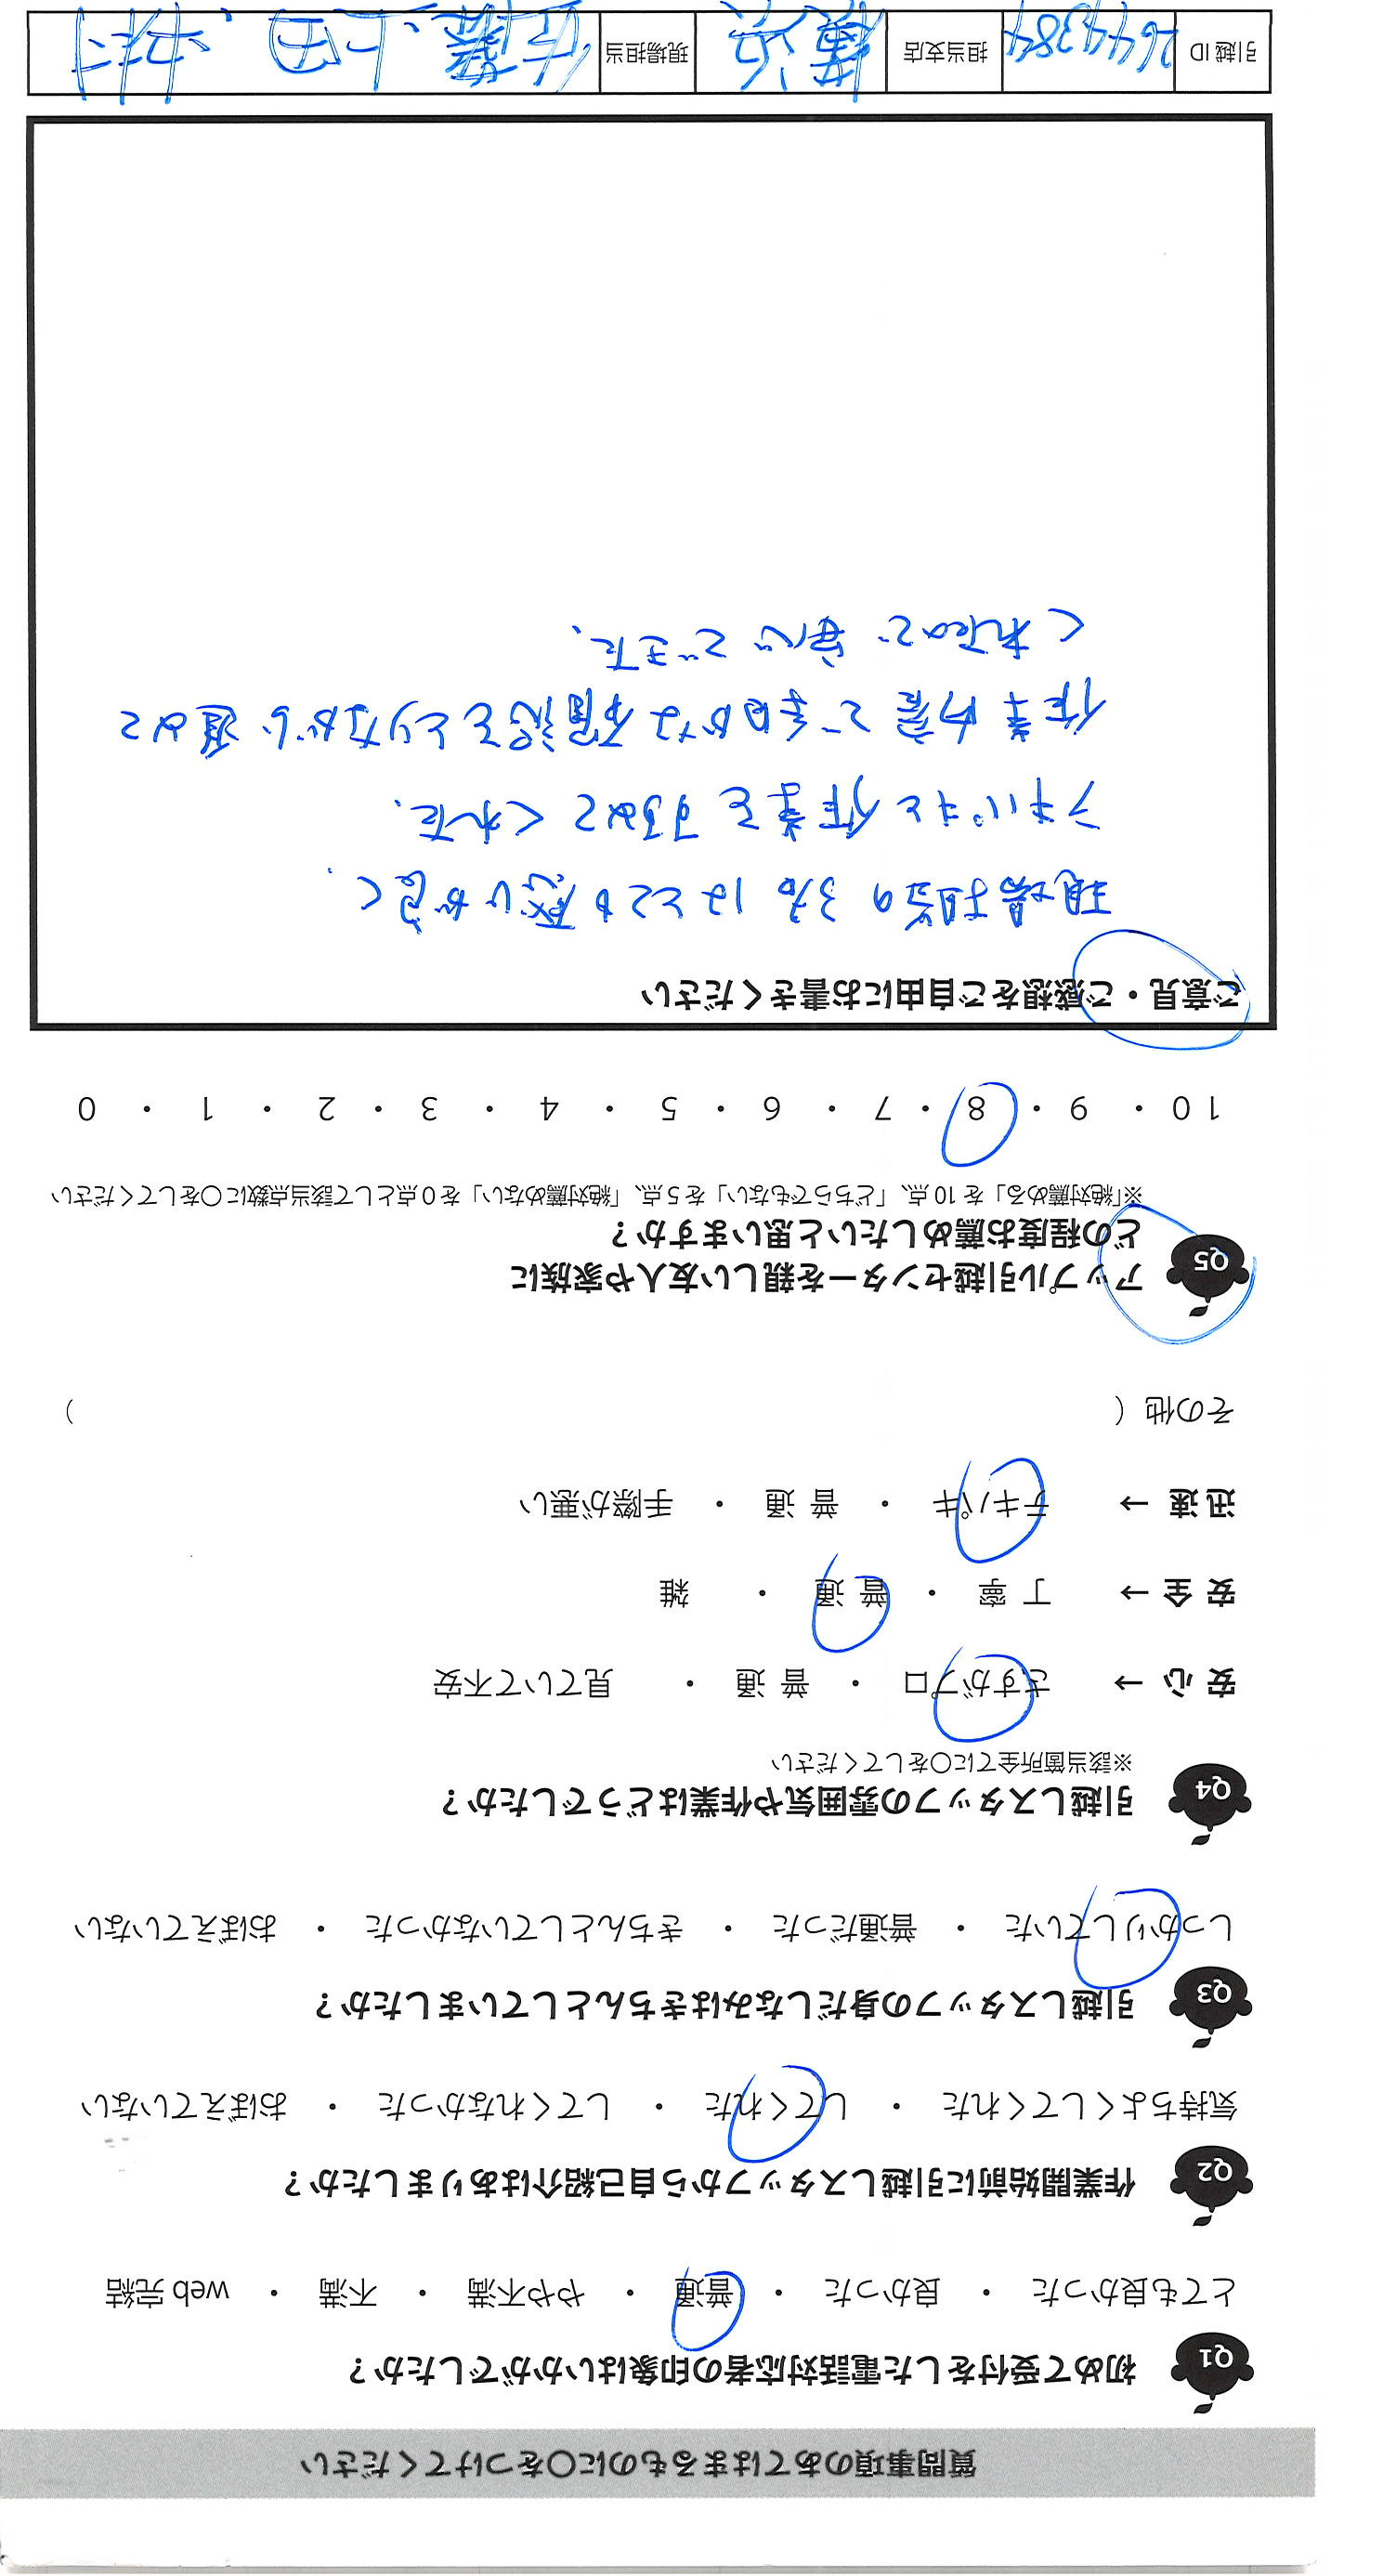 質問事項のあてはまるものに〇をつけてください
Q1 初めて受付をした電話対応者の印象はいかがでしたか？
とても良かった ・ 良かった ・ 普通 ・ やや不満 ・ 不満 ・ web 完結
Q2 作業開始前に引越しスタッフから自己紹介はありましたか？
気持ちよくしてくれた ・ してくれた ・ してくれなかった ・ おぼえていない
Q3 引越しスタッフの身だしなみはきちんとしていましたか？
しっかりしていた ・ 普通だった ・ きちんとしていなかった ・ おぼえていない
Q4 引越しスタッフの雰囲気や作業はどうでしたか？
※該当箇所全てに〇をしてください
安 心 → さすがプロ ・ 普 通 ・ 見ていて不安
安 全 → 丁 寧 ・ 普 通 ・ 雑
迅 速 → テキパキ ・ 普 通 ・ 手際が悪い
その他（ ）
Q5 アップル引越センターを親しい友人や家族に
どの程度お薦めしたいと思いますか？
※「絶対薦める」を 10 点、「どちらでもない」を 5 点、「絶対薦めない」を 0 点として該当点数に〇をしてください
10 ・ 9 ・ 8 ・ 7 ・ 6 ・ 5 ・ 4 ・ 3 ・ 2 ・ 1 ・ 0
ご意見・ご感想をご自由にお書きください
現場担当の3名はとても感じが良く
テキパキと作業をすすめてくれた.
作業内容で細かな確認をとりながら進めて
くれたので安心できた.
引越 ID 2644384 担当支店 横浜 現場担当 佐藤、上田、中村